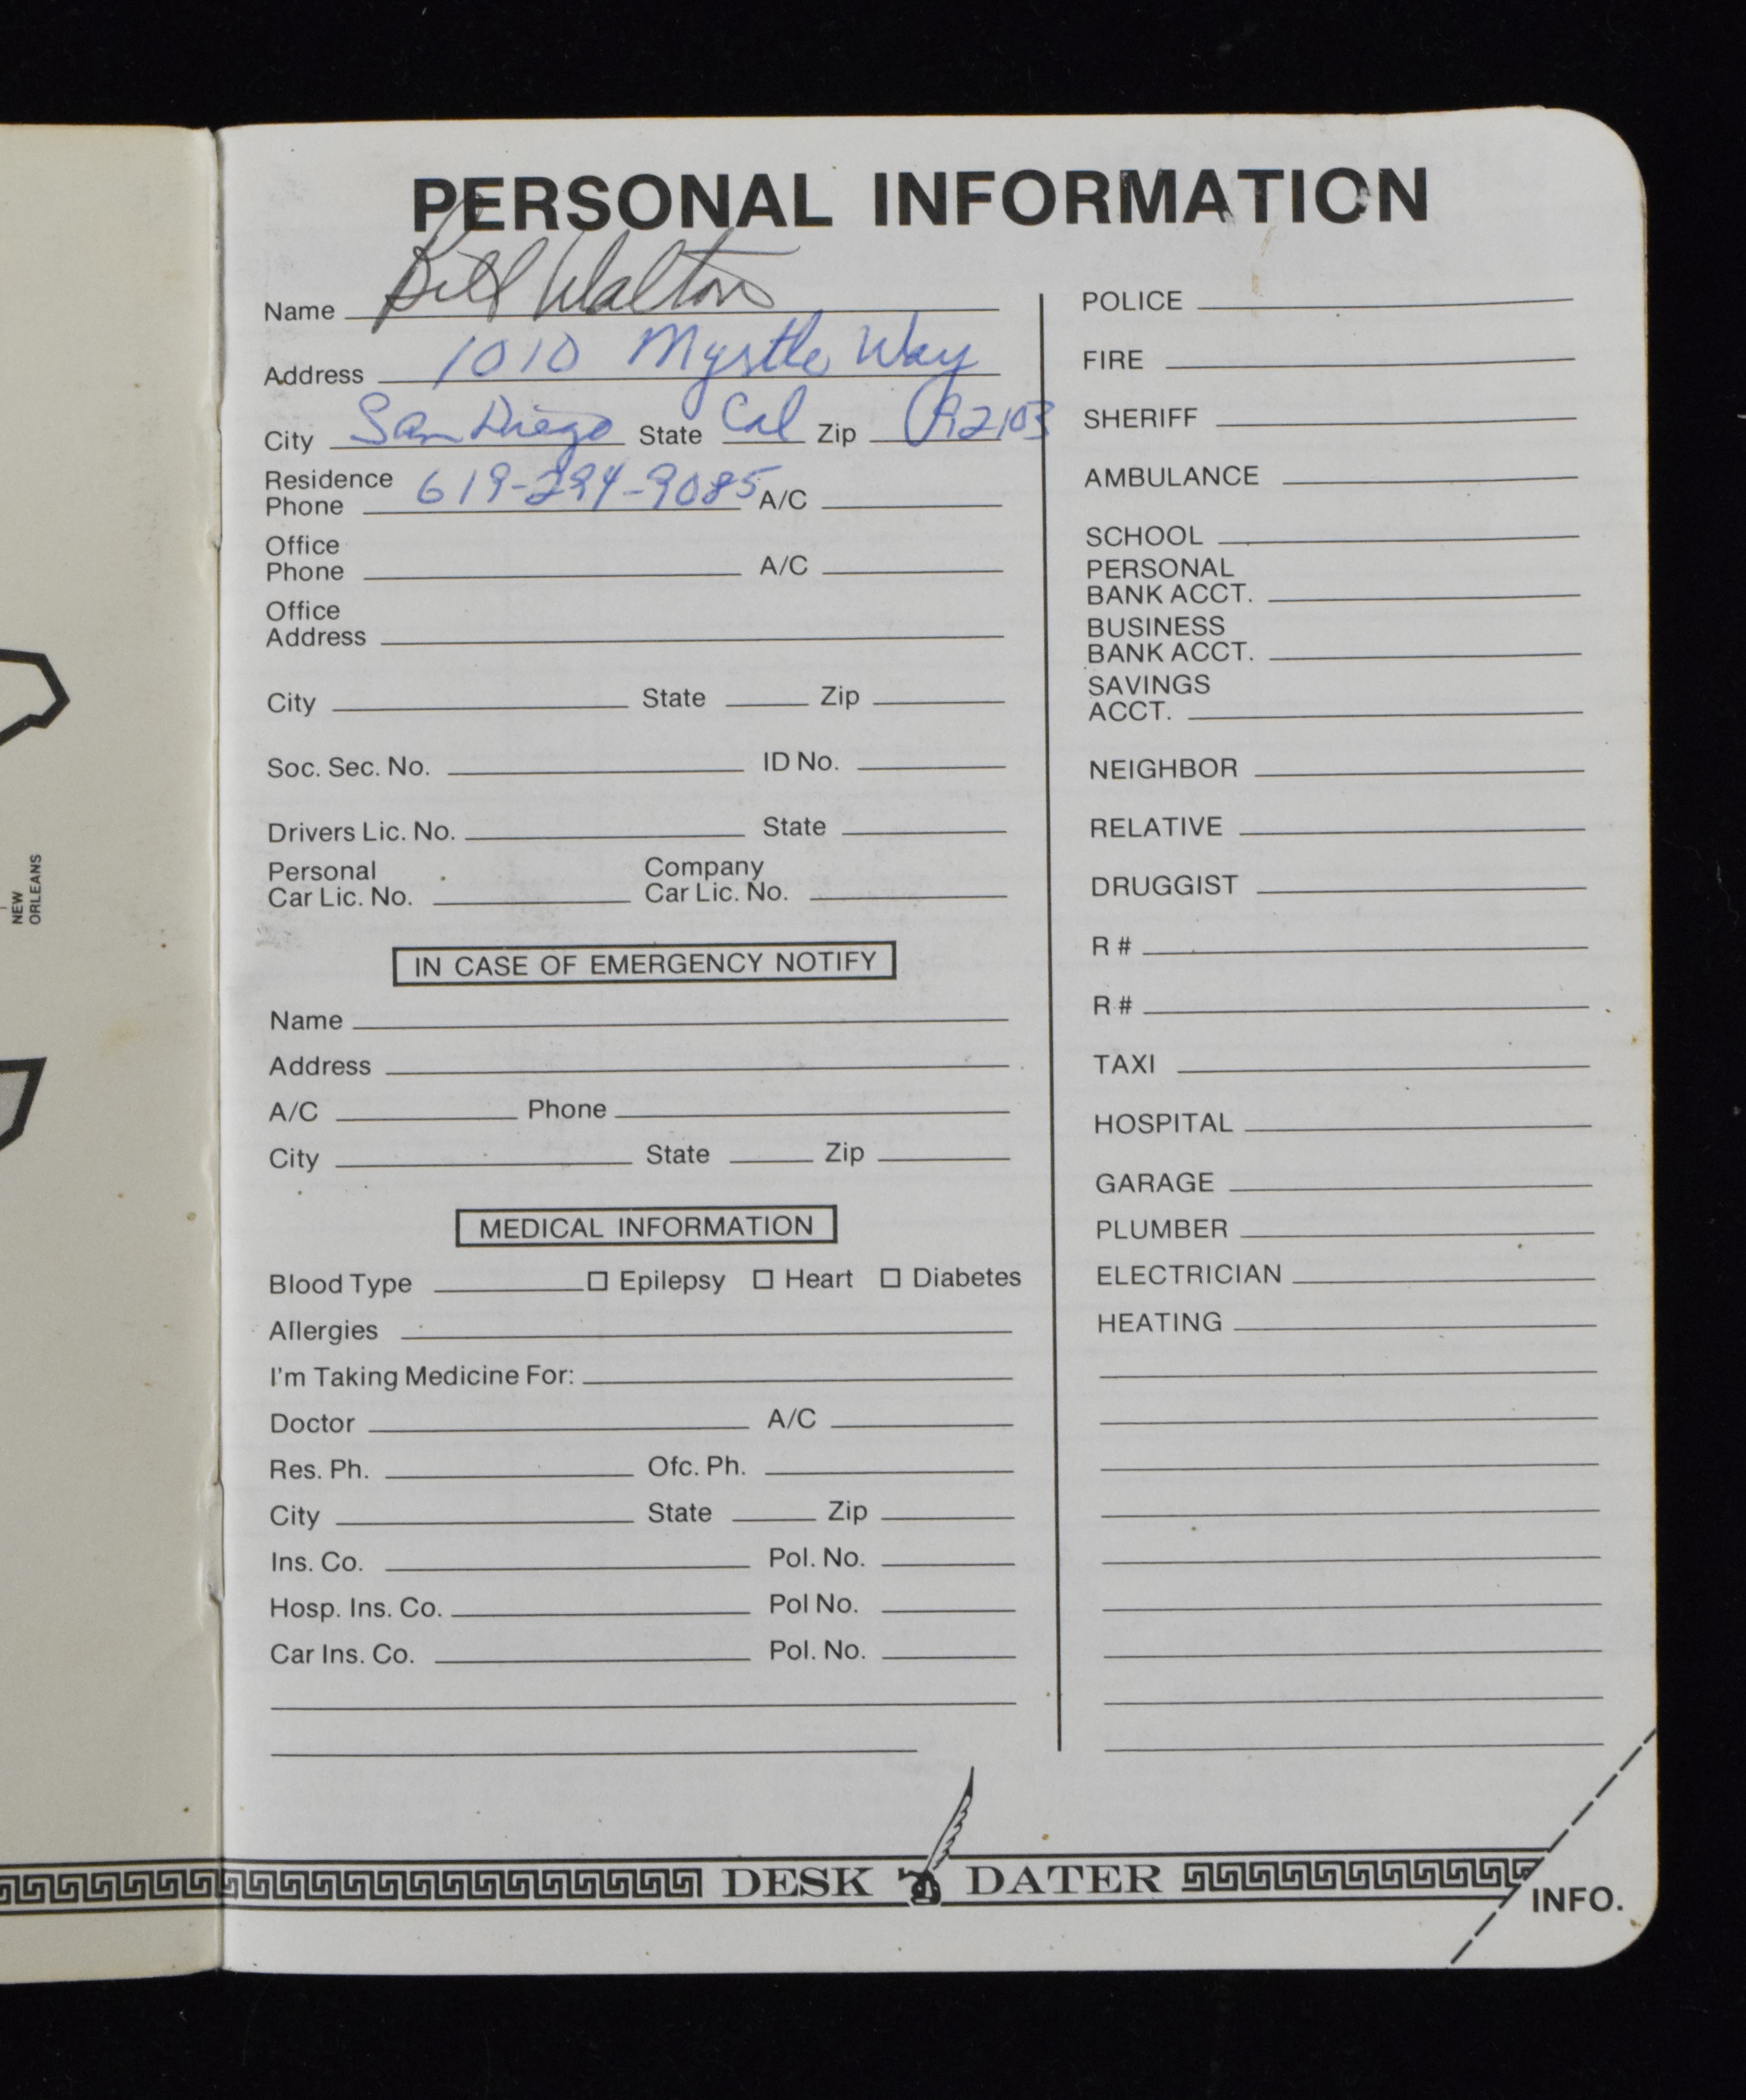 PERSONAL INFORMATION
Name Bill Walton
Address 1010 Myrtle Way
City San Diego State Cal Zip 92103
Residence
Phone 619-294-9085 A/C
Office
Phone A/C
Office
Address
City State Zip
Soc. Sec. No. ID No.
Drivers Lic. No. State
Personal Company
Car Lic. No. Car Lic. No.
IN CASE OF EMERGENCY NOTIFY
Name
Address
A/C Phone
City State Zip
MEDICAL INFORMATION
Blood Type Epilepsy Heart Diabetes
Allergies
I'm Taking Medicine For:
Doctor A/C
Res. Ph. Ofc. Ph.
City State Zip
Ins. Co. Pol. No.
Hosp. Ins. Co. Pol No.
Car Ins. Co. Pol. No.
POLICE
FIRE
SHERIFF
AMBULANCE
SCHOOL
PERSONAL
BANK ACCT.
BUSINESS
BANK ACCT.
SAVINGS
ACCT.
NEIGHBOR
RELATIVE
DRUGGIST
R #
R #
TAXI
HOSPITAL
GARAGE
PLUMBER
ELECTRICIAN
HEATING
DESK DATER
INFO.
NEW
ORLEANS